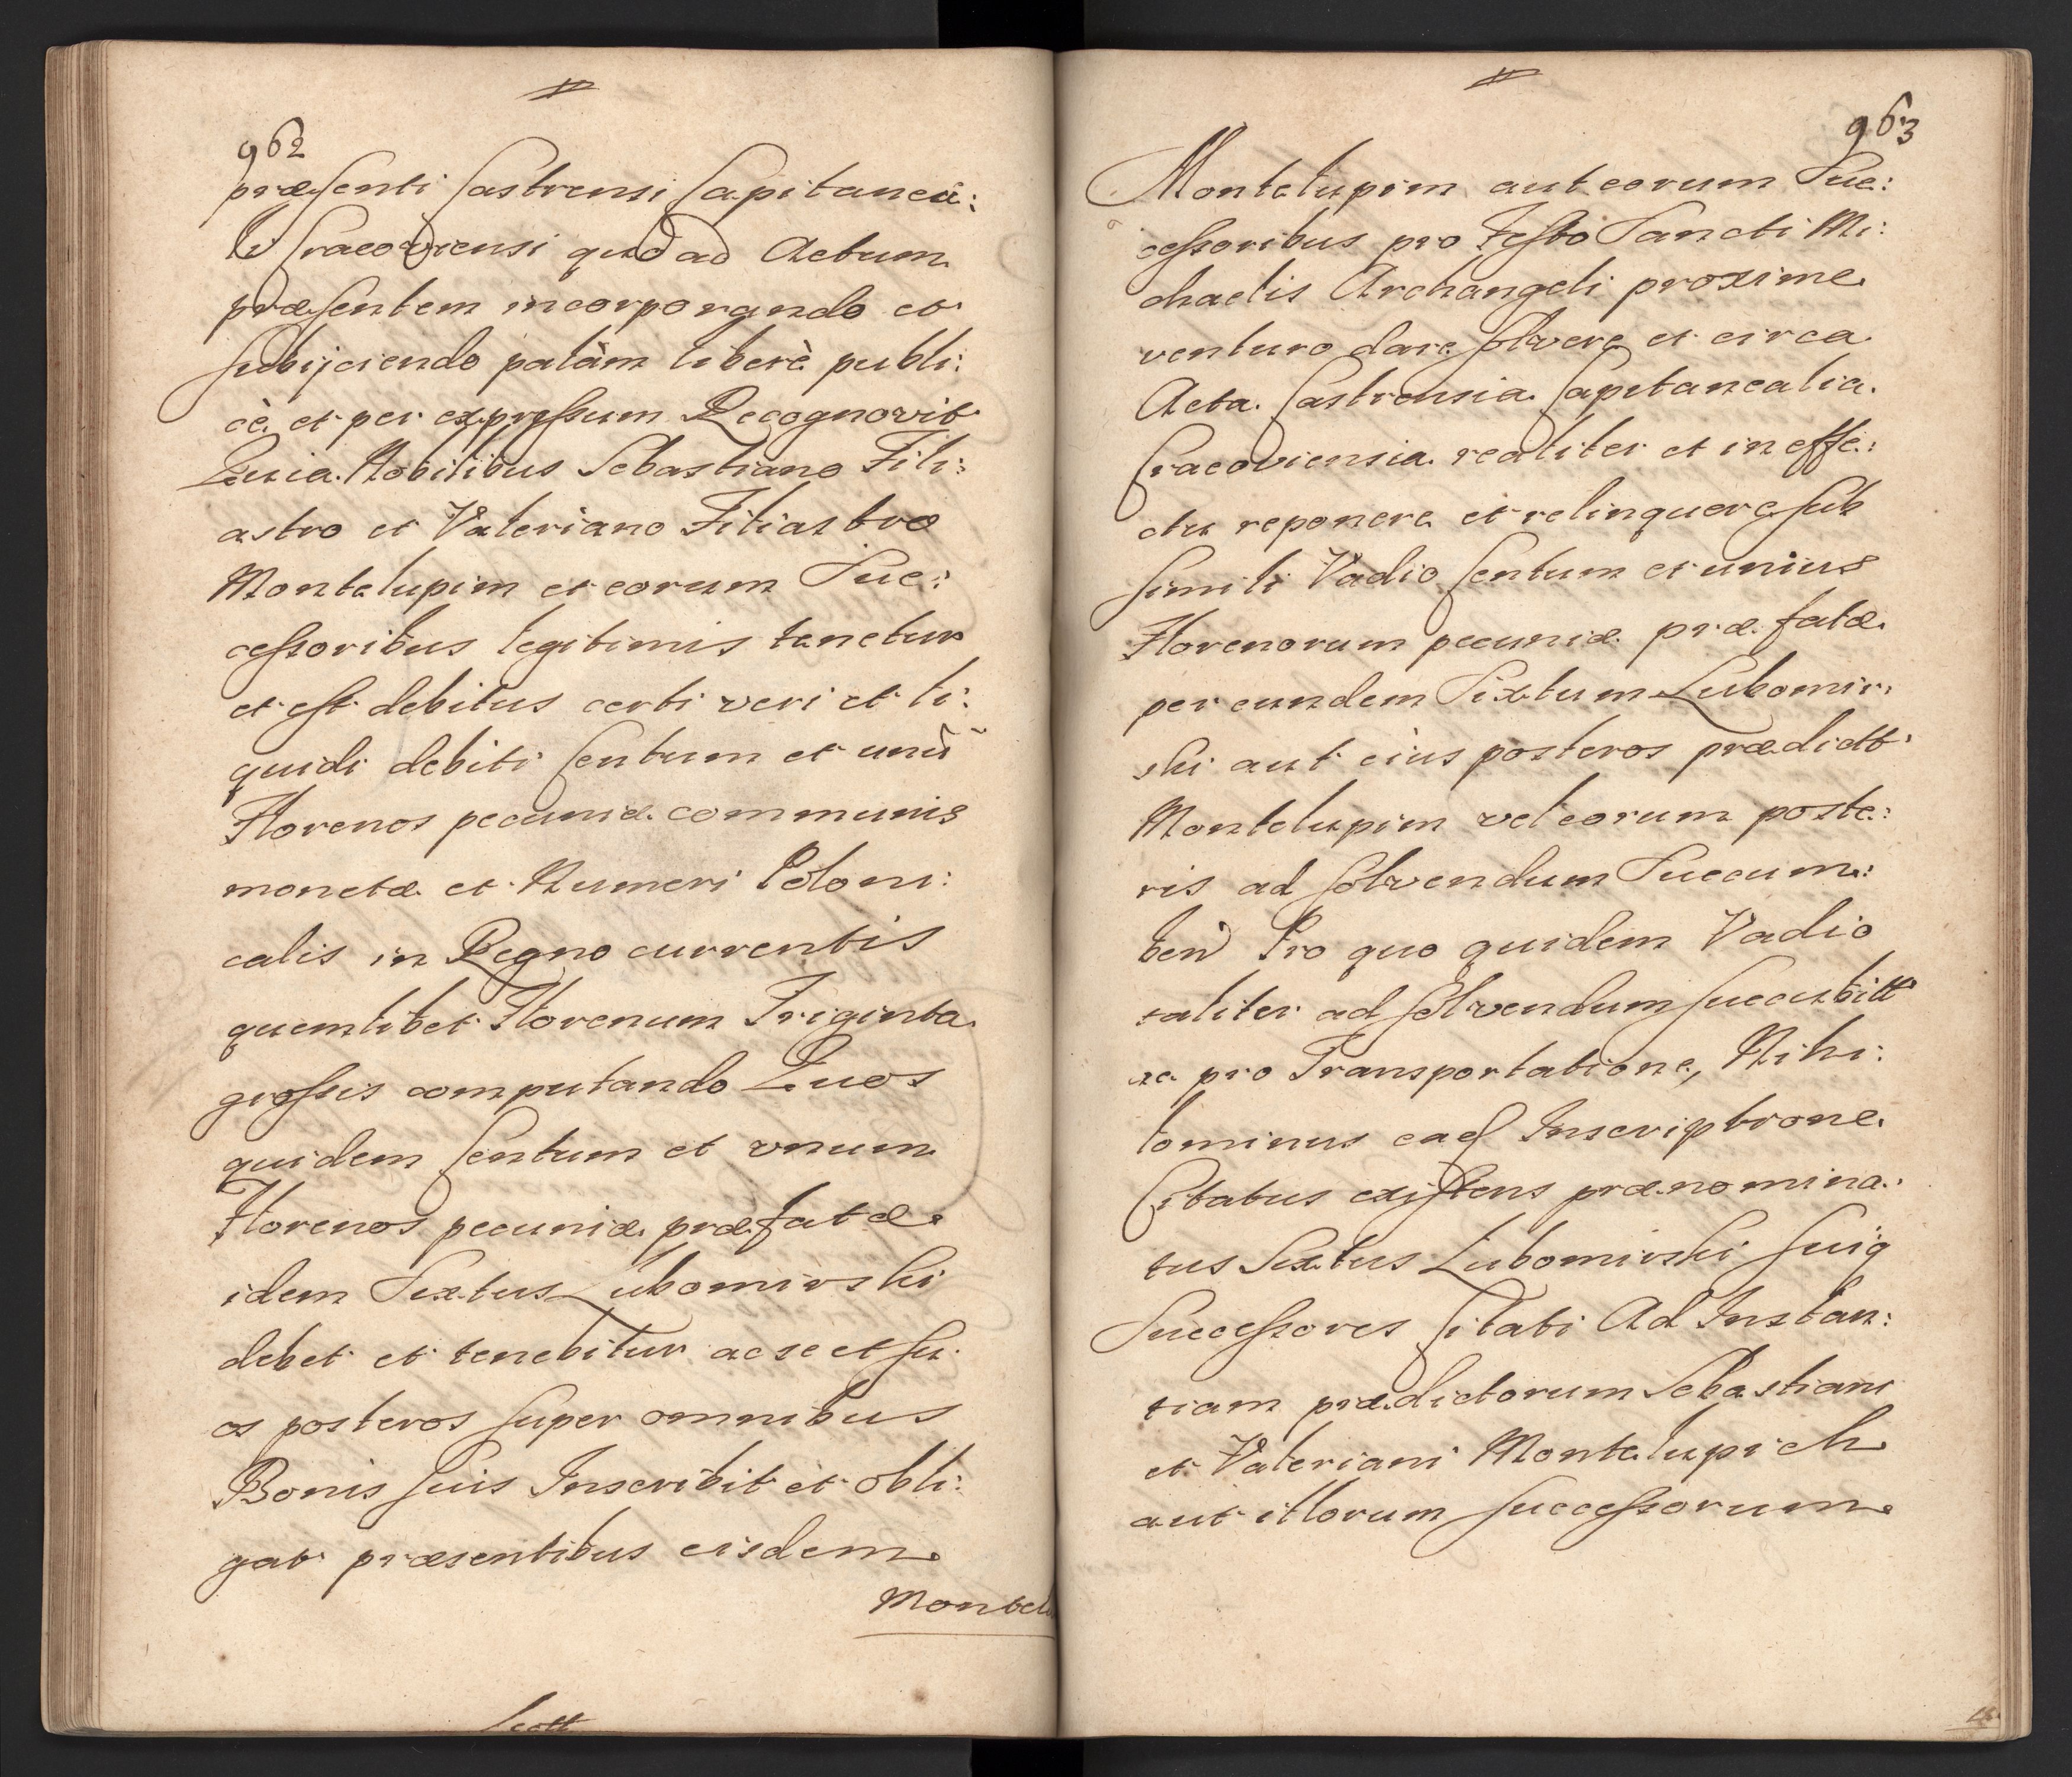 962
præsenti Castrensi Capitanea:
le Cracoviensi quoad ad Actum
præsentem incorporando et
subijciendo palàm liberè publi:
cè et per expressum Recognovit
Quia Nobilibus Sebastiano Fili:
astro et Valeriano Filiastro
Montelupim et eorum Suc:
cessoribus legitimis tenetur
et est debitus certi veri et li:
quidi debiti Centum et unũ
Florenos pecuniæ communis
monetæ et Numeri Poloni:
calis in Regno currentis
quemlibet Florenum Triginta
grossis computando Quos
quidem Centum et vnum
Florenos pecuniæ præfatæ
idem Sextus Lubomirski
debet et tenebitur ac se et su
os posteros super omnibus
Bonis suis Inscribit et obli:
gat præsentibus eisdem
Montel
963
Montelupim aut eorum Suc:
cessoribus pro Festo Sancti Mi:
chaelis Archangeli proxime
venturo dare solvere et circa
Acta Castrensia Capitanealia
Cracoviensia realiter et in effe:
ctu reponere et relinquere sub
simili Vadio Centum et unius
Florenorum pecuniæ præfatæ
per eundem Sixtum Lubomir:
ski aut eius posteros prædict
Montelupim vel eorum poste:
ris ad solvendum Succum:
ben Pro quo quidem Vadio
taliter ad solvendum succubitt
ne pro Transportatione, Nihi:
lominus ead Inscriptione
Citatus existens prænomina:
tus Sextus Lubomirski suiq
Successores Citati Ad Instan:
tiam prædictorum Sebastiani
et Valeriani Montelupich
aut illorum successorum